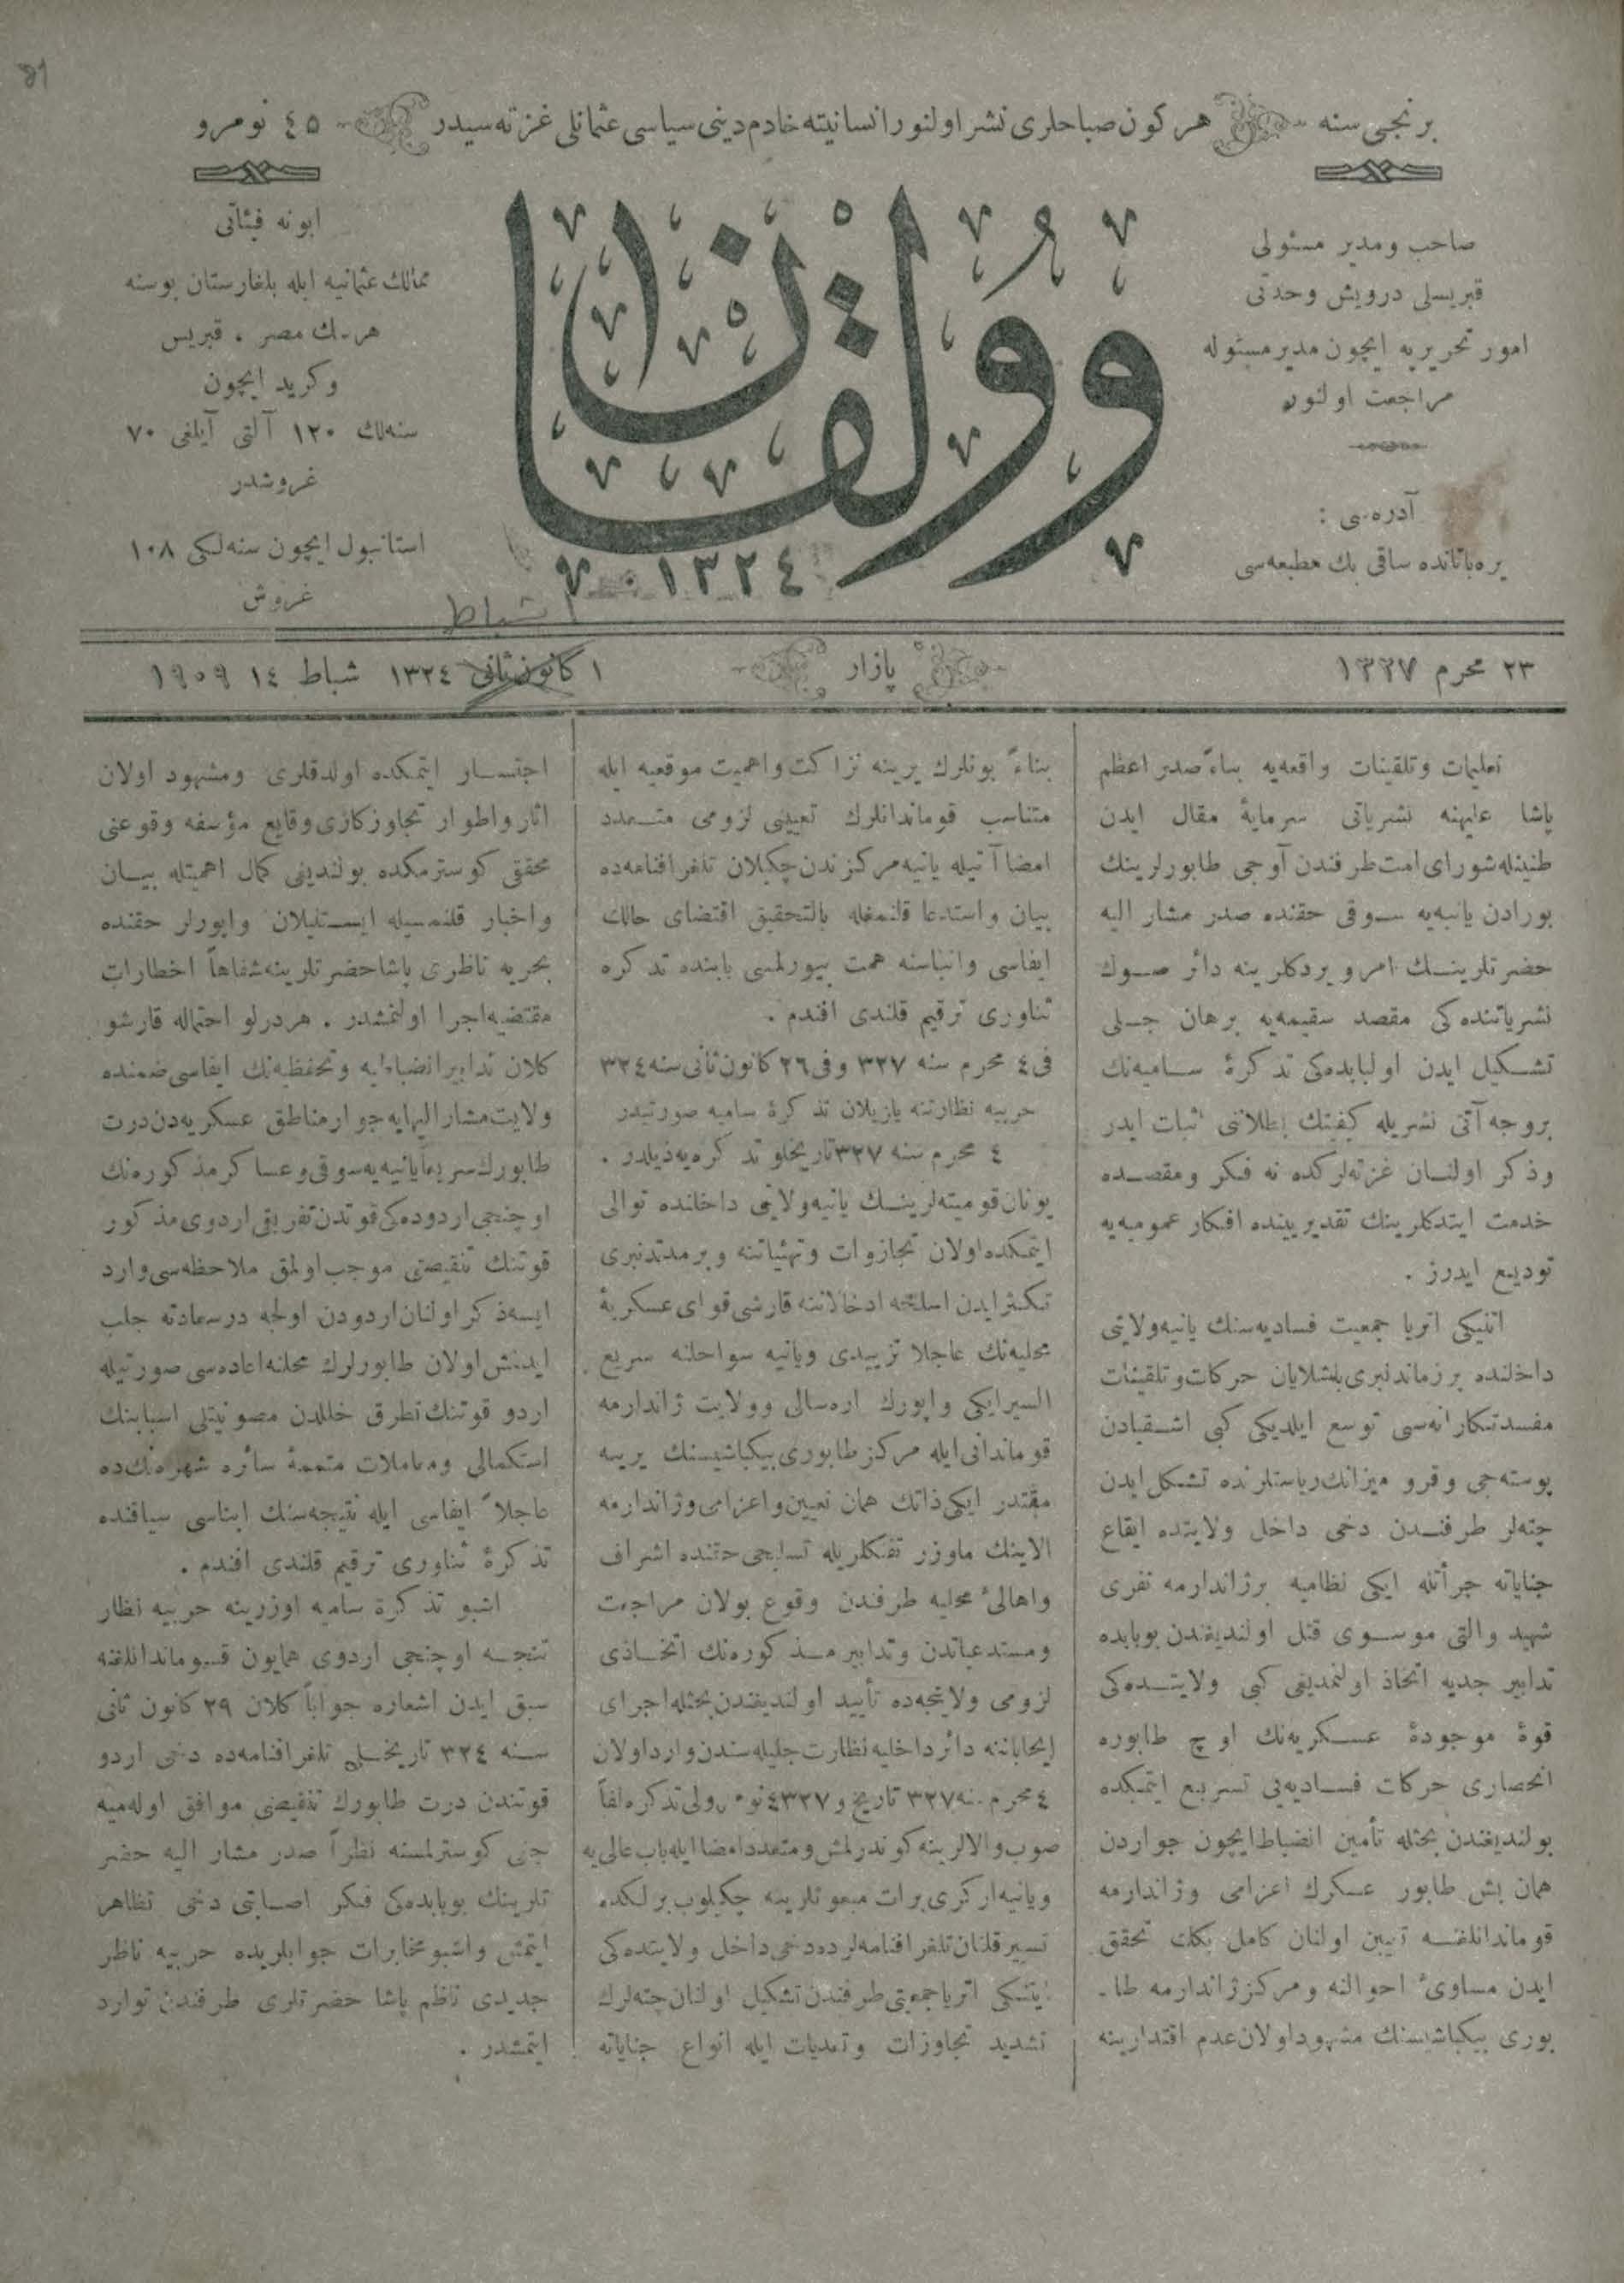 81
برنجی سنه
هر كون صباحلری نشر اولنور انسانیته خادم دینی سیاسی عثمانلی غزته سیدر
٤٥ نومرو
صاحب ومدیر مسئولی
قبریسلی درویش وحدتی
امور تحریریه ایچون مدیر مسئوله
مراجعت اولنور
آدره سی :
یره باتانده ساقی بك مطبعه سی
وولقان
١٣٢٤
ابونه فیئاتی
ممالك عثمانیه ایله بلغارستان بوسنه
هرسك مصر ، قبریس
وكرید ایچون
سنه لك ١٢٠ آلتی آیلغی ٧٠
غروشدر
استانبول ایچون سنه لكی ١٠٨
غروش
شباط
٢٣ محرم ١٣٢٧
پازار
١ كانون ثانی ١٣٢٤ شباط ١٤ ١٩٠٩
تعلیمات وتلقینات واقعه یه بناءً صدر اعظم
پاشا علیهنه نشریاتی سرمایهٔ مقال ایدن
طنینله شورای امت طرفندن آوجی طابورلرینك
بورادن یانیه یه سوقی حقنده صدر مشار الیه
حضرتلرینك امر ویردكلرینه دائر صوك
نشریاتنده كی مقصد سقیمه یه برهان جلی
تشكیل ایدن اولبابده كی تذكرهٔ سامیه نك
بروجه آتی نشریله كیفیتك بطلاننی اثبات ایدر
وذكر اولنان غزته لركده نه فكر ومقصده
خدمت ایتدكلرینك تقدیرینده افكار عمومیه یه
تودیع ایدرز .
اتنیكی اتریا جمعیت فسادیه سنك یانیه ولایتی
داخلنده بر زماندنبری باشلایان حركات وتلقینات
مفسدتكارانه سی توسع ایلدیكی كبی اشقیادن
پوسته جی وقرو میزانك ریاستلرنده تشكل ایدن
چته لر طرفندن دخی داخل ولایتده ایقاع
جنایاته جرأتله ایكی نظامیه برژاندارمه نفری
شهید والتی موسوی قتل اولندیغندن بوبابده
تدابیر جدیه اتخاذ اولنمدیغی كبی ولایتده كی
قوهٔ موجودهٔ عسكریه نك اوچ طابوره
انحصاری حركات فسادیه یی تسریع ایتمكده
بولندیغندن بحثله تأمین انضباط ایچون جواردن
همان بش طابور عسكرك اعزامی وژاندارمه
قوماندانلغنه تعیین اولنان كامل بكك تحقق
ایدن مساوئ احوالنه ومركز ژاندارمه طا-
بوری بیكباشیسنك مشهود اولان عدم اقتدارینه
بناءً بونلرك یرینه نزاكت واهمیت موقعیه ایله
متناسب قوماندانلرك تعیینی لزومی متعدد
امضا آتیله یانیه مركزندن چكیلان تلغرافنامه ده
بیان واستدعا قلنمغله بالتحقیق اقتضای حالك
ایفاسی وانباسنه همت بیورلمسی بابنده تذكره
ثناوری ترقیم قلندی افندم .
فی ٤ محرم سنه ٣٢٧ وفی ٢٦ كانون ثانی سنه ٣٢٤
حربیه نظارتنه یازیلان تذكرهٔ سامیه صورتیدر
٤ محرم سنه ٣٢٧ تاریخلو تذكره یه ذیلدر .
یونان قومیته لرینك یانیه ولایتی داخلنده توالی
ایتمكده اولان تجاوزات وتهیئاتنه وبر مدتدنبری
تكثر ایدن اسلحه ادخالاتنه قارشی قوای عسكریهٔ
محلیه نك عاجلا تزییدی ویانیه سواحلنه سریع
السیر ایكی واپورك ارسالی وولایت ژاندارمه
قوماندانی ایله مركز طابوری بیكباشیسنك یرینه
مقتدر ایكی ذاتك همان تعیین واعزامی وژاندارمه
الاینك ماوزر تفنكلریله تسلیحی حقنده اشراف
واهالئ محلیه طرفندن وقوع بولان مراجعت
ومستدعیاتدن وتدابیر مذكوره نك اتخاذی
لزومی ولایتجه ده تأیید اولندیغندن بحثله اجرای
ایجاباتنه دائر داخلیه نظارت جلیله سندن وارد اولان
٤ محرم سنه ٣٢٧ تاریخ و ٤٣٢٧ نومرولی تذكره لفاً
صوب والالرینه كوندرلمش ومتعدد امضا ایله باب عالی یه
ویانیه اركری برات مبعوثلرینه چكیلوب برلكده
تسییر قلنان تلغرافنامه لرده دخی داخل ولایتده كی
ایتنكی اتریا جمعیتی طرفندن تشكیل اولنان چته لرك
تشدید تجاوزات وتعدیات ایله انواع جنایاته
اجتسار ایتمكده اولدقلری ومشهود اولان
اثار واطوار تجاوزكاری وقایع مؤسفه وقوعنی
محقق كوسترمكده بولندیغی كمال اهمیتله بیان
واخبار قلنمسیله ایستنیلان واپورلر حقنده
بحریه ناظری پاشا حضرتلرینه شفاهاً اخطارات
مقتضیه اجرا اولنمشدر . هر درلو احتماله قارشو
كلان تدابیر انضباطیه وتحفظیه نك ایفاسی ضمننده
ولایت مشار الیهایه جوار مناطق عسكریه دن درت
طابورك سریعاً یانیه یه سوقی وعساكر مذكوره نك
اوچنجی اردوده كی قوتدن تفریقی اردوی مذكور
قوتنك تنقیصنی موجب اولمق ملاحظه سی وارد
ایسه ذكر اولنان اردودن اولجه درسعادته جلب
ایدلمش اولان طابورلرك محلنه اعاده سی صورتیله
اردو قوتنك تطرق خللدن مصونیتی اسبابنك
استكمالی ومعاملات متممهٔ سائره
عاجلاً ایفاسی ایله نتیجه سنك انباسی سیاقنده
تذكرهٔ ثناوری ترقیم قلندی افندم .
اشبو تذكرهٔ سامیه اوزرینه حربیه نظار
تنجه اوچنجی اردوی همایون قوماندانلغنه
سبق ایدن اشعاره جواباً كلان ٢٩ كانون ثانی
سنه ٣٢٤ تاریخلی تلغرافنامه ده دخی اردو
قوتندن درت طابورك تنقیصی موافق اوله میه
جغی كوسترلمسنه نظراً صدر مشار الیه حضر
تلرینك بوبابده كی فكر اصابتی دخی تظاهر
ایتمش واشبو مخابرات جوابلریده حربیه ناظر
جدیدی ناظم پاشا حضرتلری طرفندن توارد
ایتمشدر .